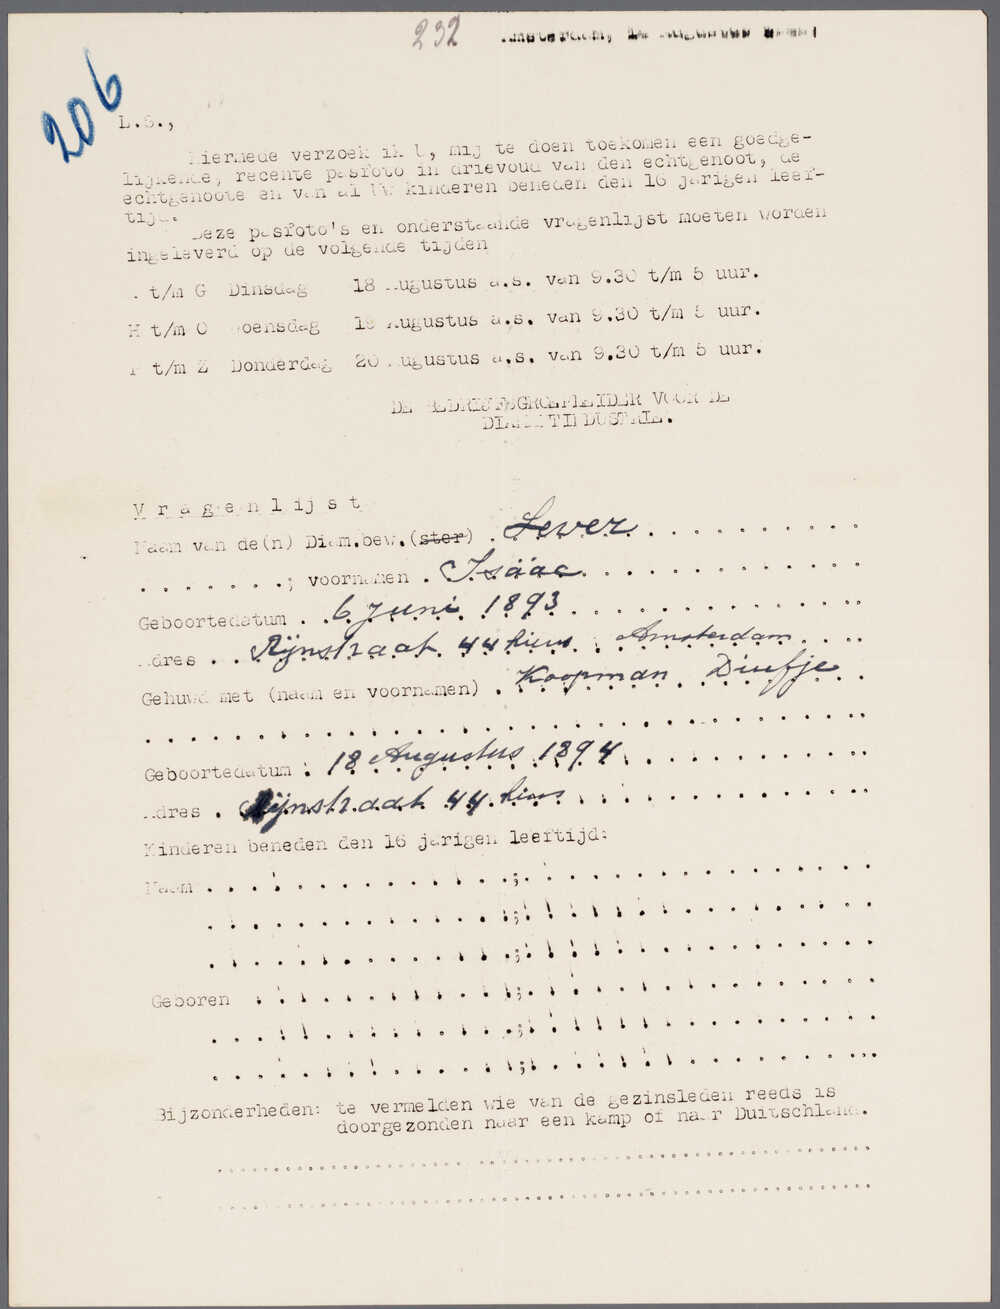 232
Amsterdam, Augustus
206
L.S.,
Hiermede verzoek ik U, mij te doen toekomen een goedge-
lijkende, recente pasfoto in drievoud van den echtgenoot, de
echtgenoote en van al Uw kinderen beneden den 16 jarigen leef-
tijd.
Deze pasfoto's en onderstaande vragenlijst moeten worden
ingeleverd op de volgende tijden
t/m G Dinsdag 18 Augustus a.s. van 9.30 t/m 5 uur.
H t/m O Woensdag 19 Augustus a.s. van 9.30 t/m 5 uur.
P t/m Z Donderdag 20 Augustus a.s. van 9.30 t/m 5 uur.
DE BEDRIJFSGROEPLEIDER VOOR DE
DIAMANTINDUSTRIE.
Vragenlijst
Naam van de(n) Diam.bew.(ster) . Lever . . . . . . . . . .
. . . . . . . .; voornamen . Isäac . . . . . . . . . . . .
Geboortedatum . . 6 Juni 1893 . . . . . . . . . . . . .
Adres . . Rijnstraat 44 huis . Amsterdam . . . .
Gehuwd met (naam en voornamen) . Koopman Duifje . .
. . . . . . . . . . . . . . . . . . . . . . . . . . . . . . . .
Geboortedatum : 18 Augustus 1894 . . . . . . . . . . .
Adres . Rijnstraat 44 huis . . . . . . . . . . . . . . .
Kinderen beneden den 16 jarigen leeftijd:
Naam . . . . . . . . . . . . . .; . . . . . . . . . . . . . . .
. . . . . . . . . . . . . .; . . . . . . . . . . . . . . .
. . . . . . . . . . . . . .; . . . . . . . . . . . . . . .
Geboren . . . . . . . . . . . .; . . . . . . . . . . . . . . .
. . . . . . . . . . . . . .; . . . . . . . . . . . . . . .
. . . . . . . . . . . . . .; . . . . . . . . . . . . . . .
Bijzonderheden: te vermelden wie van de gezinsleden reeds is
doorgezonden naar een kamp of naar Duitschland.
. . . . . . . . . . . . . . . . . . . . . . . . . . . . . . . .
. . . . . . . . . . . . . . . . . . . . . . . . . . . . . . . .